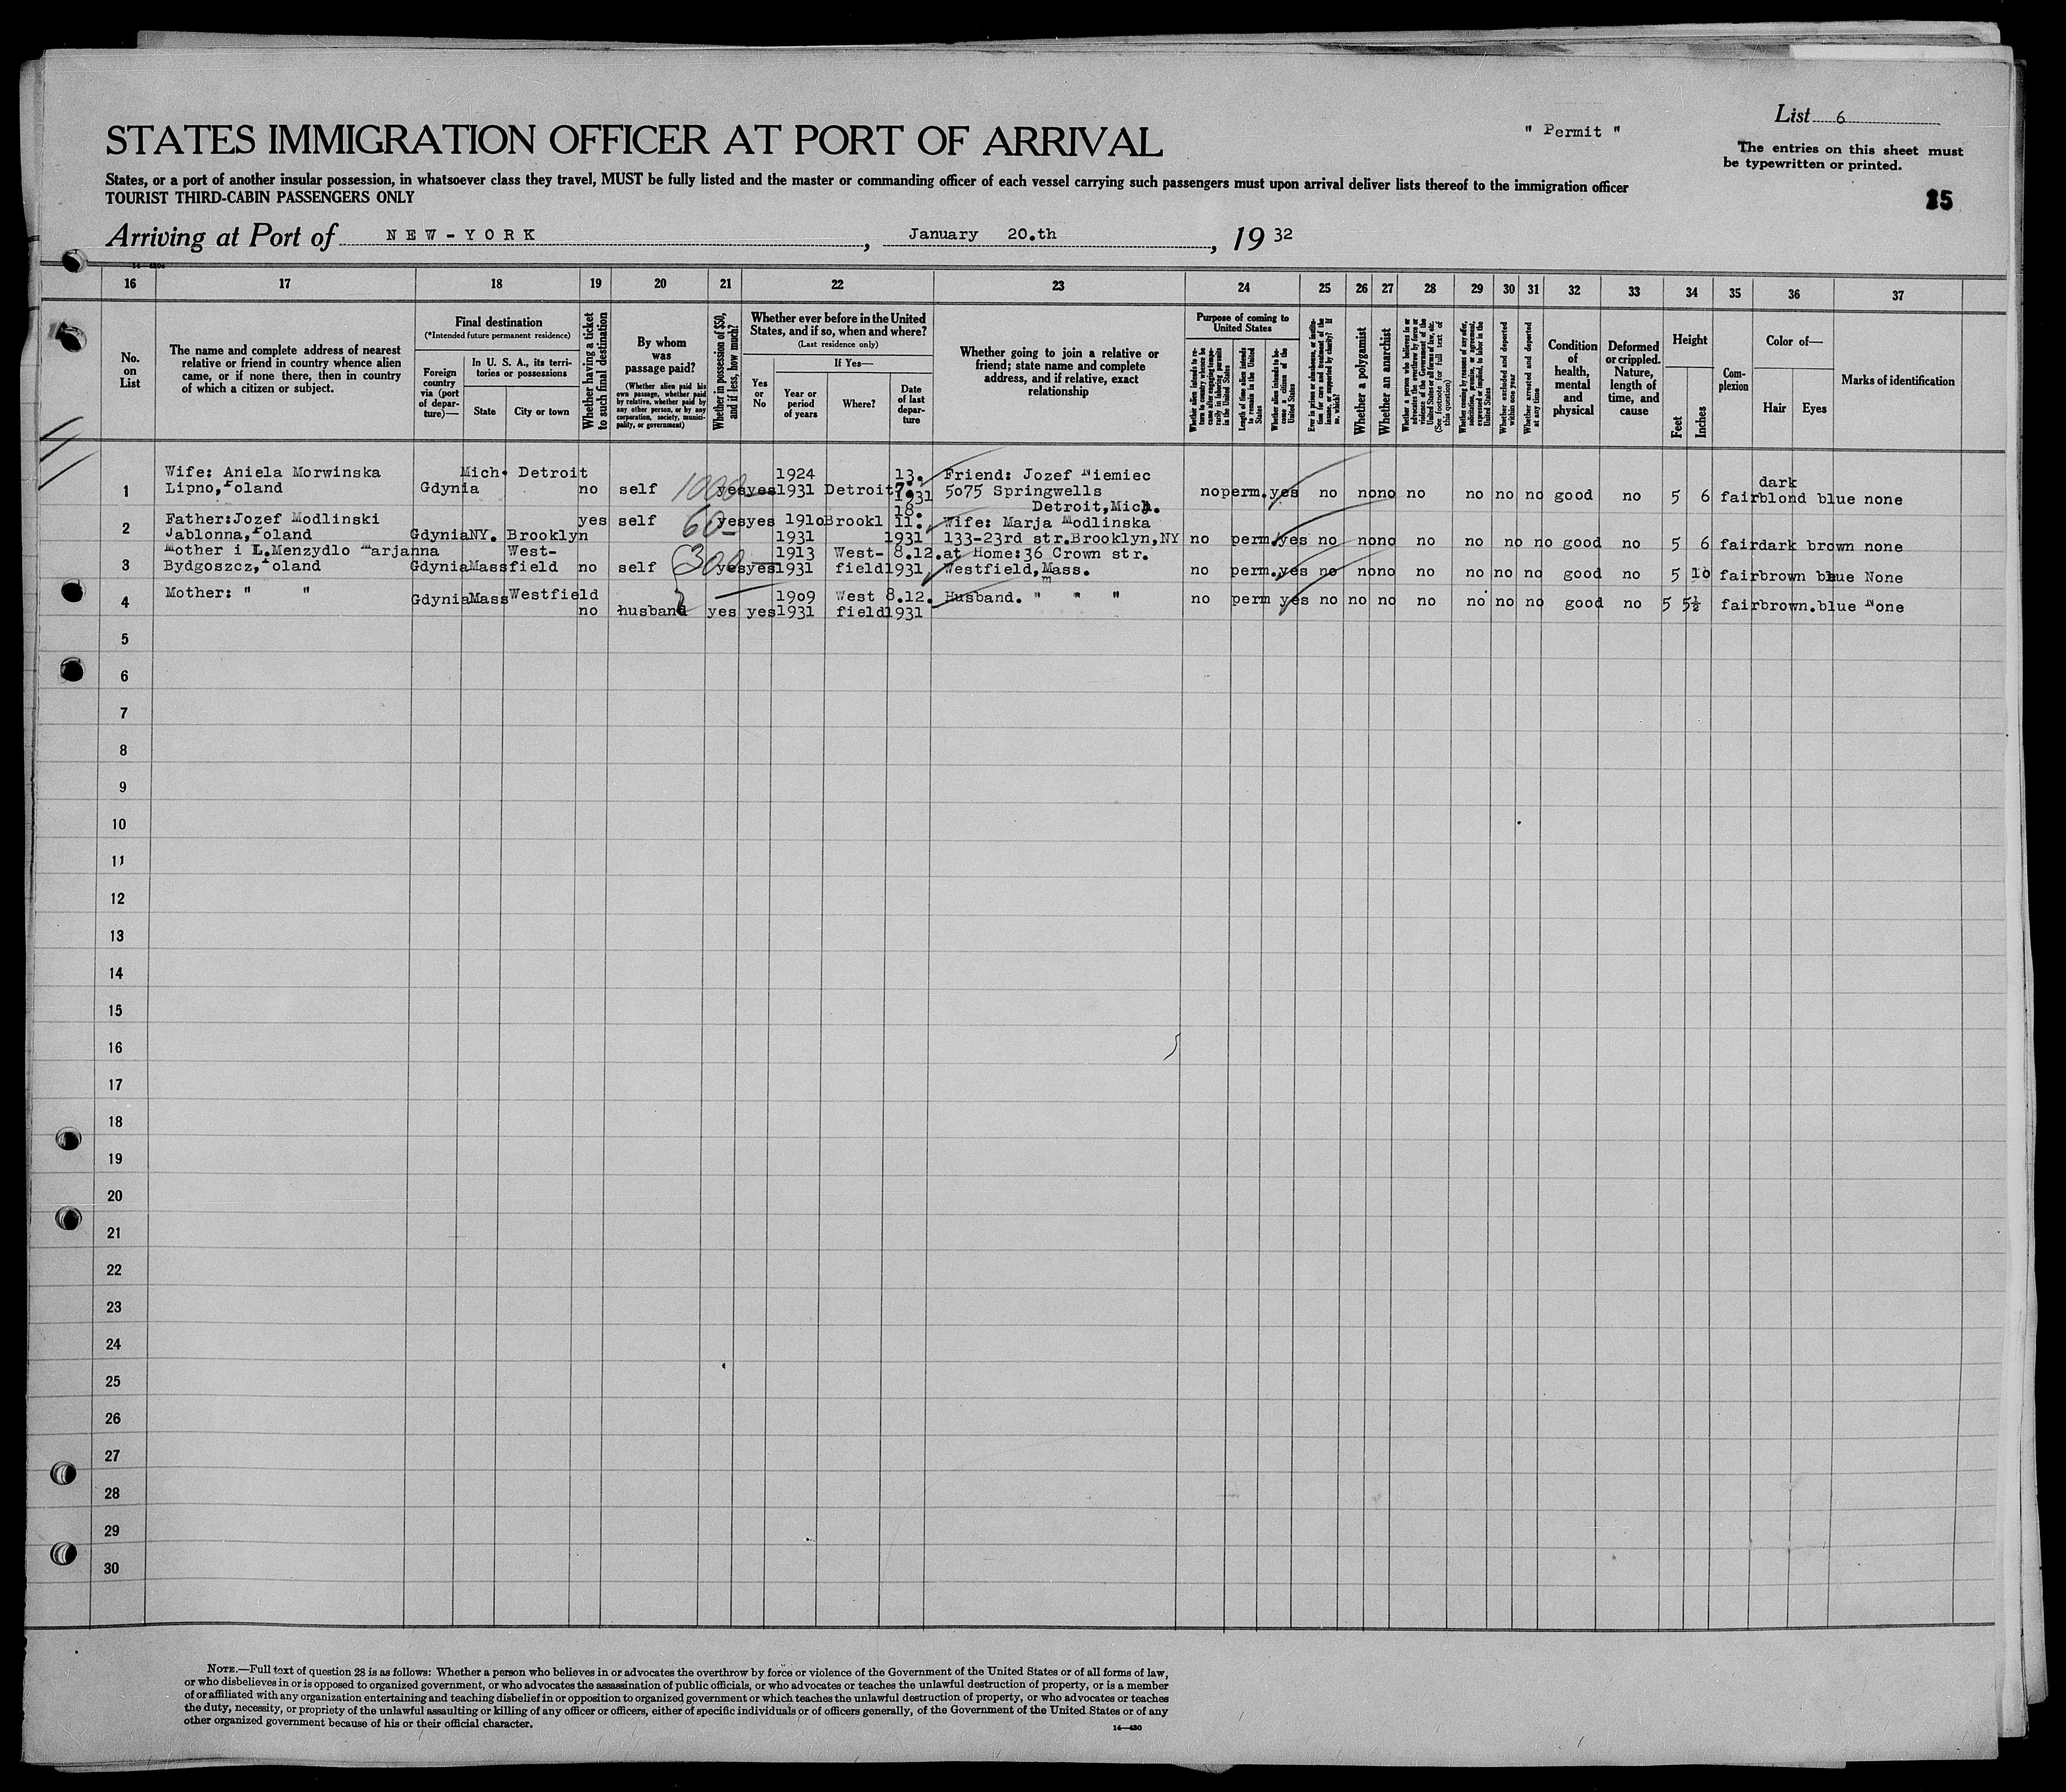 List 6
" Permit "
STATES IMMIGRATION OFFICER AT PORT OF ARRIVAL
The entries on this sheet must
be typewritten or printed.
States, or a port of another insular possession, in whatsoever class they travel, MUST be fully listed and the master or commanding officer of each vessel carrying such passengers must upon arrival deliver lists thereof to the immigration officer
TOURIST THIRD-CABIN PASSENGERS ONLY
Arriving at Port of NEW-YORK, January 20.th, 19 32
16 17 18 19 20 21 22 23 24 25 26 27 28 29 30 31 32 33 34 35 36 37
No.
on
List
The name and complete address of nearest
relative or friend in country whence alien
came, or if none there, then in country
of which a citizen or subject.
Final destination
(*Intended future permanent residence)
Foreign
country
via (port
of depar-
ture)—
In U. S. A., its terri-
tories or possessions
State
City or town
Whether having a ticket
to such final destination
By whom
was
passage paid?
(Whether alien paid his
own passage, whether paid
by relative, whether paid by
any other person, or by any
corporation, society, munici-
pality, or government)
Whether in possession of $50,
and if less, how much?
Whether ever before in the United
States, and if so, when and where?
(Last residence only)
Yes
or
No
If Yes—
Year or
period
of years
Where?
Date
of last
depar-
ture
Whether going to join a relative or
friend; state name and complete
address, and if relative, exact
relationship
Purpose of coming to
United States
Whether alien intends to re-
turn to country whence he
came after engaging tempo-
rarily in laboring pursuits
in the United States
Length of time alien intends
to remain in the United
States
Whether alien intends to be-
come a citizen of the
United States
Ever in prison or almshouse, or institu-
tion for care and treatment of the
insane, or supported by charity? If
so, which?
Whether a polygamist
Whether an anarchist
Whether a person who believes in or
advocates the overthrow by force or
violence of the Government of the
United States or all forms of law, etc.
(See footnote for full text of
this question)
Whether coming by reason of any offer,
solicitation, promise, or agreement,
expressed or implied, to labor in the
United States
Whether excluded and deported
within one year
Whether arrested and deported
at any time
Condition
of
health,
mental
and
physical
Deformed
or crippled.
Nature,
length of
time, and
cause
Height
Feet
Inches
Com-
plexion
Color of—
Hair
Eyes
Marks of identification
Wife: Aniela Morwinska Mich. Detroit 1924 13. Friend: Jozef Niemiec dark
1 Lipno, Poland Gdynia no self 1000 yes yes 1931 Detroit 7. 1931 5075 Springwells no perm. yes no no no no no no no good no 5 6 fair blond blue none
Detroit, Mich.
2 Father: Jozef Modlinski yes self 60 yes yes 1910 Brookl 18. 11. Wife: Marja Modlinska
Jablonna, Poland Gdynia NY. Brooklyn 1931 1931 133-23rd str. Brooklyn, NY no perm. yes no no no no no no no good no 5 6 fair dark brown none
Mother i L. Menzydlo Marjanna West- 1913 West- 8.12. at Home: 36 Crown str.
3 Bydgoszcz, Poland Gdynia Mass field no self 300 yes yes 1931 field 1931 Westfield, Mass. no perm. yes no no no no no no no good no 5 10 fair brown blue None
4 Mother: " " Gdynia Mass Westfield 1909 West 8.12. Husband. " " " no perm yes no no no no no no no good no 5 5½ fair brown. blue None
no husband yes yes 1931 field 1931
5
6
7
8
9
10
11
12
13
14
15
16
17
18
19
20
21
22
23
24
25
26
27
28
29
30
NOTE.—Full text of question 28 is as follows: Whether a person who believes in or advocates the overthrow by force or violence of the Government of the United States or of all forms of law,
or who disbelieves in or is opposed to organized government, or who advocates the assassination of public officials, or who advocates or teaches the unlawful destruction of property, or is a member
of or affiliated with any organization entertaining and teaching disbelief in or opposition to organized government or which teaches the unlawful destruction of property, or who advocates or teaches
the duty, necessity, or propriety of the unlawful assaulting or killing of any officer or officers, either of specific individuals or of officers generally, of the Government of the United States or of any
other organized government because of his or their official character.
14—430